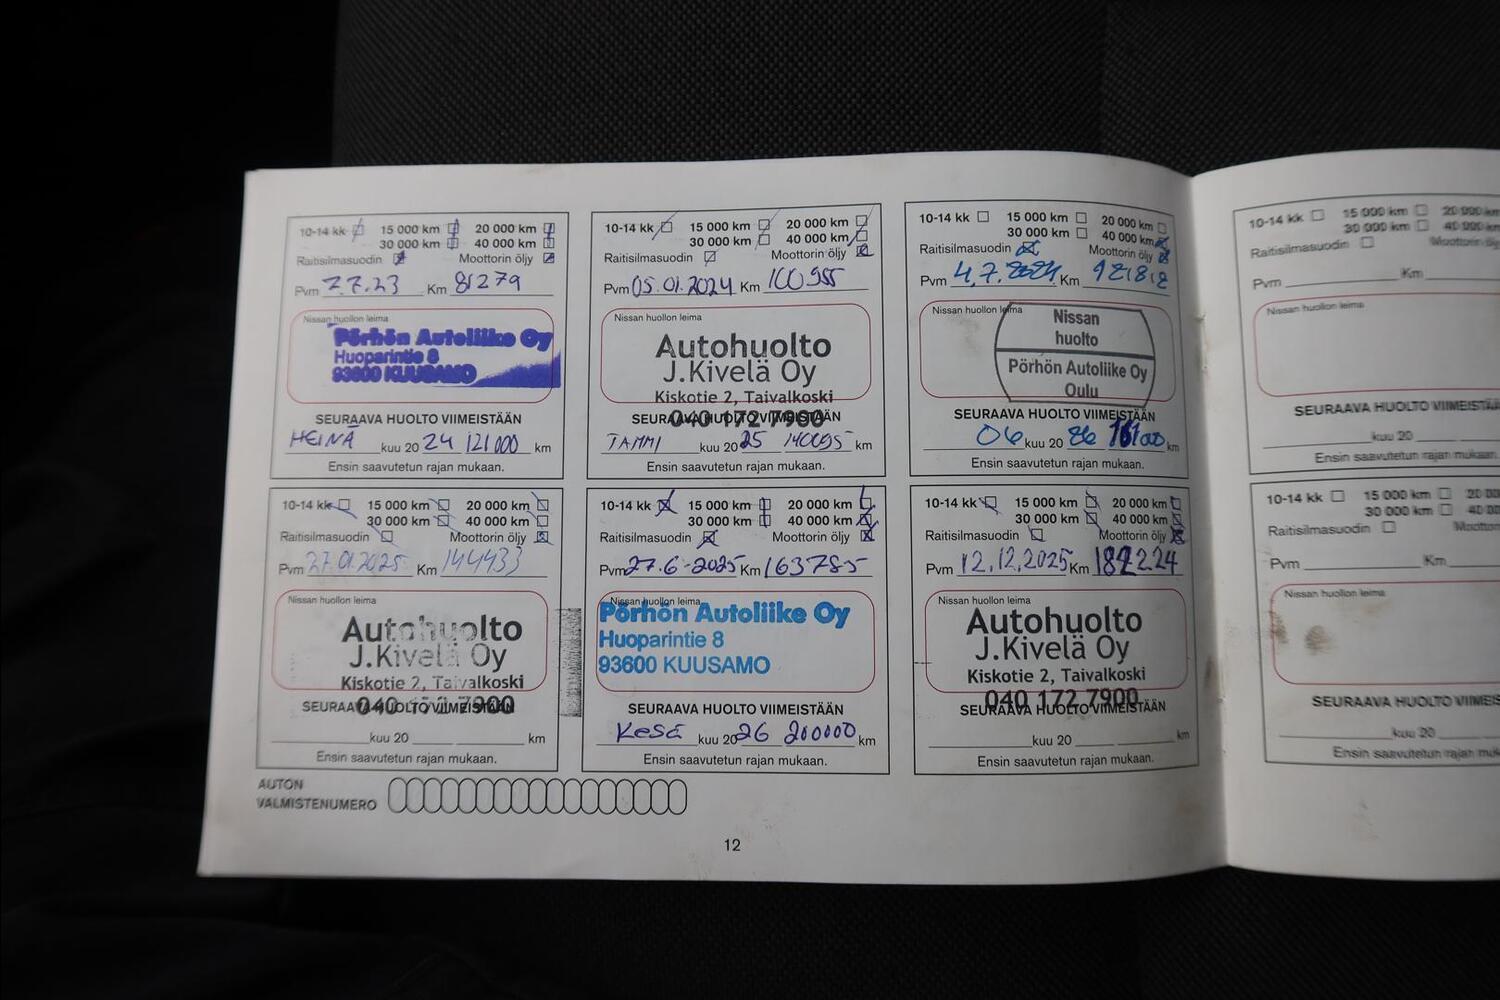 10-14 kk 15 000 km 20 000 km
30 000 km 40 000 km
Raitisilmasuodin Moottorin öljy
Pvm 7.7.23 Km 81279
Nissan huollon leima
Pörhön Autoliike Oy
Huoparintie 8
93600 KUUSAMO
SEURAAVA HUOLTO VIIMEISTÄÄN
HEINÄ kuu 20 24 121000 km
Ensin saavutetun rajan mukaan.
10-14 kk 15 000 km 20 000 km
30 000 km 40 000 km
Raitisilmasuodin Moottorin öljy
Pvm 05.01.2024 Km 100955
Nissan huollon leima
Autohuolto
J.Kivelä Oy
Kiskotie 2, Taivalkoski
040 172 7900
SEURAAVA HUOLTO VIIMEISTÄÄN
TAMMI kuu 20 25 km
Ensin saavutetun rajan mukaan.
10-14 kk 15 000 km 20 000 km
30 000 km 40 000 km
Raitisilmasuodin Moottorin öljy
Pvm 4.7. Km
Nissan huollon leima
Nissan
huolto
Pörhön Autoliike Oy
Oulu
SEURAAVA HUOLTO VIIMEISTÄÄN
06 kuu 20 km
Ensin saavutetun rajan mukaan.
10-14 kk 15 000 km 20 000 km
30 000 km 40 000 km
Raitisilmasuodin Moottorin öljy
Pvm 27.01.2025 Km 144433
Nissan huollon leima
Autohuolto
J.Kivelä Oy
Kiskotie 2, Taivalkoski
040 172 7900
SEURAAVA HUOLTO VIIMEISTÄÄN
kuu 20 km
Ensin saavutetun rajan mukaan.
10-14 kk 15 000 km 20 000 km
30 000 km 40 000 km
Raitisilmasuodin Moottorin öljy
Pvm 27.6-2025 Km 163785
Nissan huollon leima
Pörhön Autoliike Oy
Huoparintie 8
93600 KUUSAMO
SEURAAVA HUOLTO VIIMEISTÄÄN
Kesä kuu 20 26 200000 km
Ensin saavutetun rajan mukaan.
10-14 kk 15 000 km 20 000 km
30 000 km 40 000 km
Raitisilmasuodin Moottorin öljy
Pvm 12.12.2025 Km 182224
Nissan huollon leima
Autohuolto
J.Kivelä Oy
Kiskotie 2, Taivalkoski
040 172 7900
SEURAAVA HUOLTO VIIMEISTÄÄN
kuu 20 km
Ensin saavutetun rajan mukaan.
AUTON
VALMISTENUMERO
12
10-14 kk 15 000 km 20 000 km
30 000 km 40 000 km
Raitisilmasuodin Moottorin öljy
Pvm Km
Nissan huollon leima
SEURAAVA HUOLTO
kuu 20
Ensin saavutetun rajan mukaan.
10-14 kk 15 000 km
30 000 km
Raitisilmasuodin
Pvm Km
Nissan huollon leima
SEURAAVA HUOLTO
kuu 20
Ensin saavutetun rajan